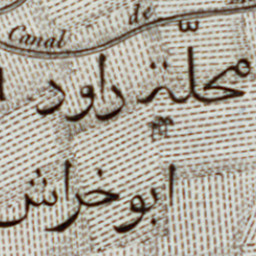 Canal de
محلّة داود
ابو خراش